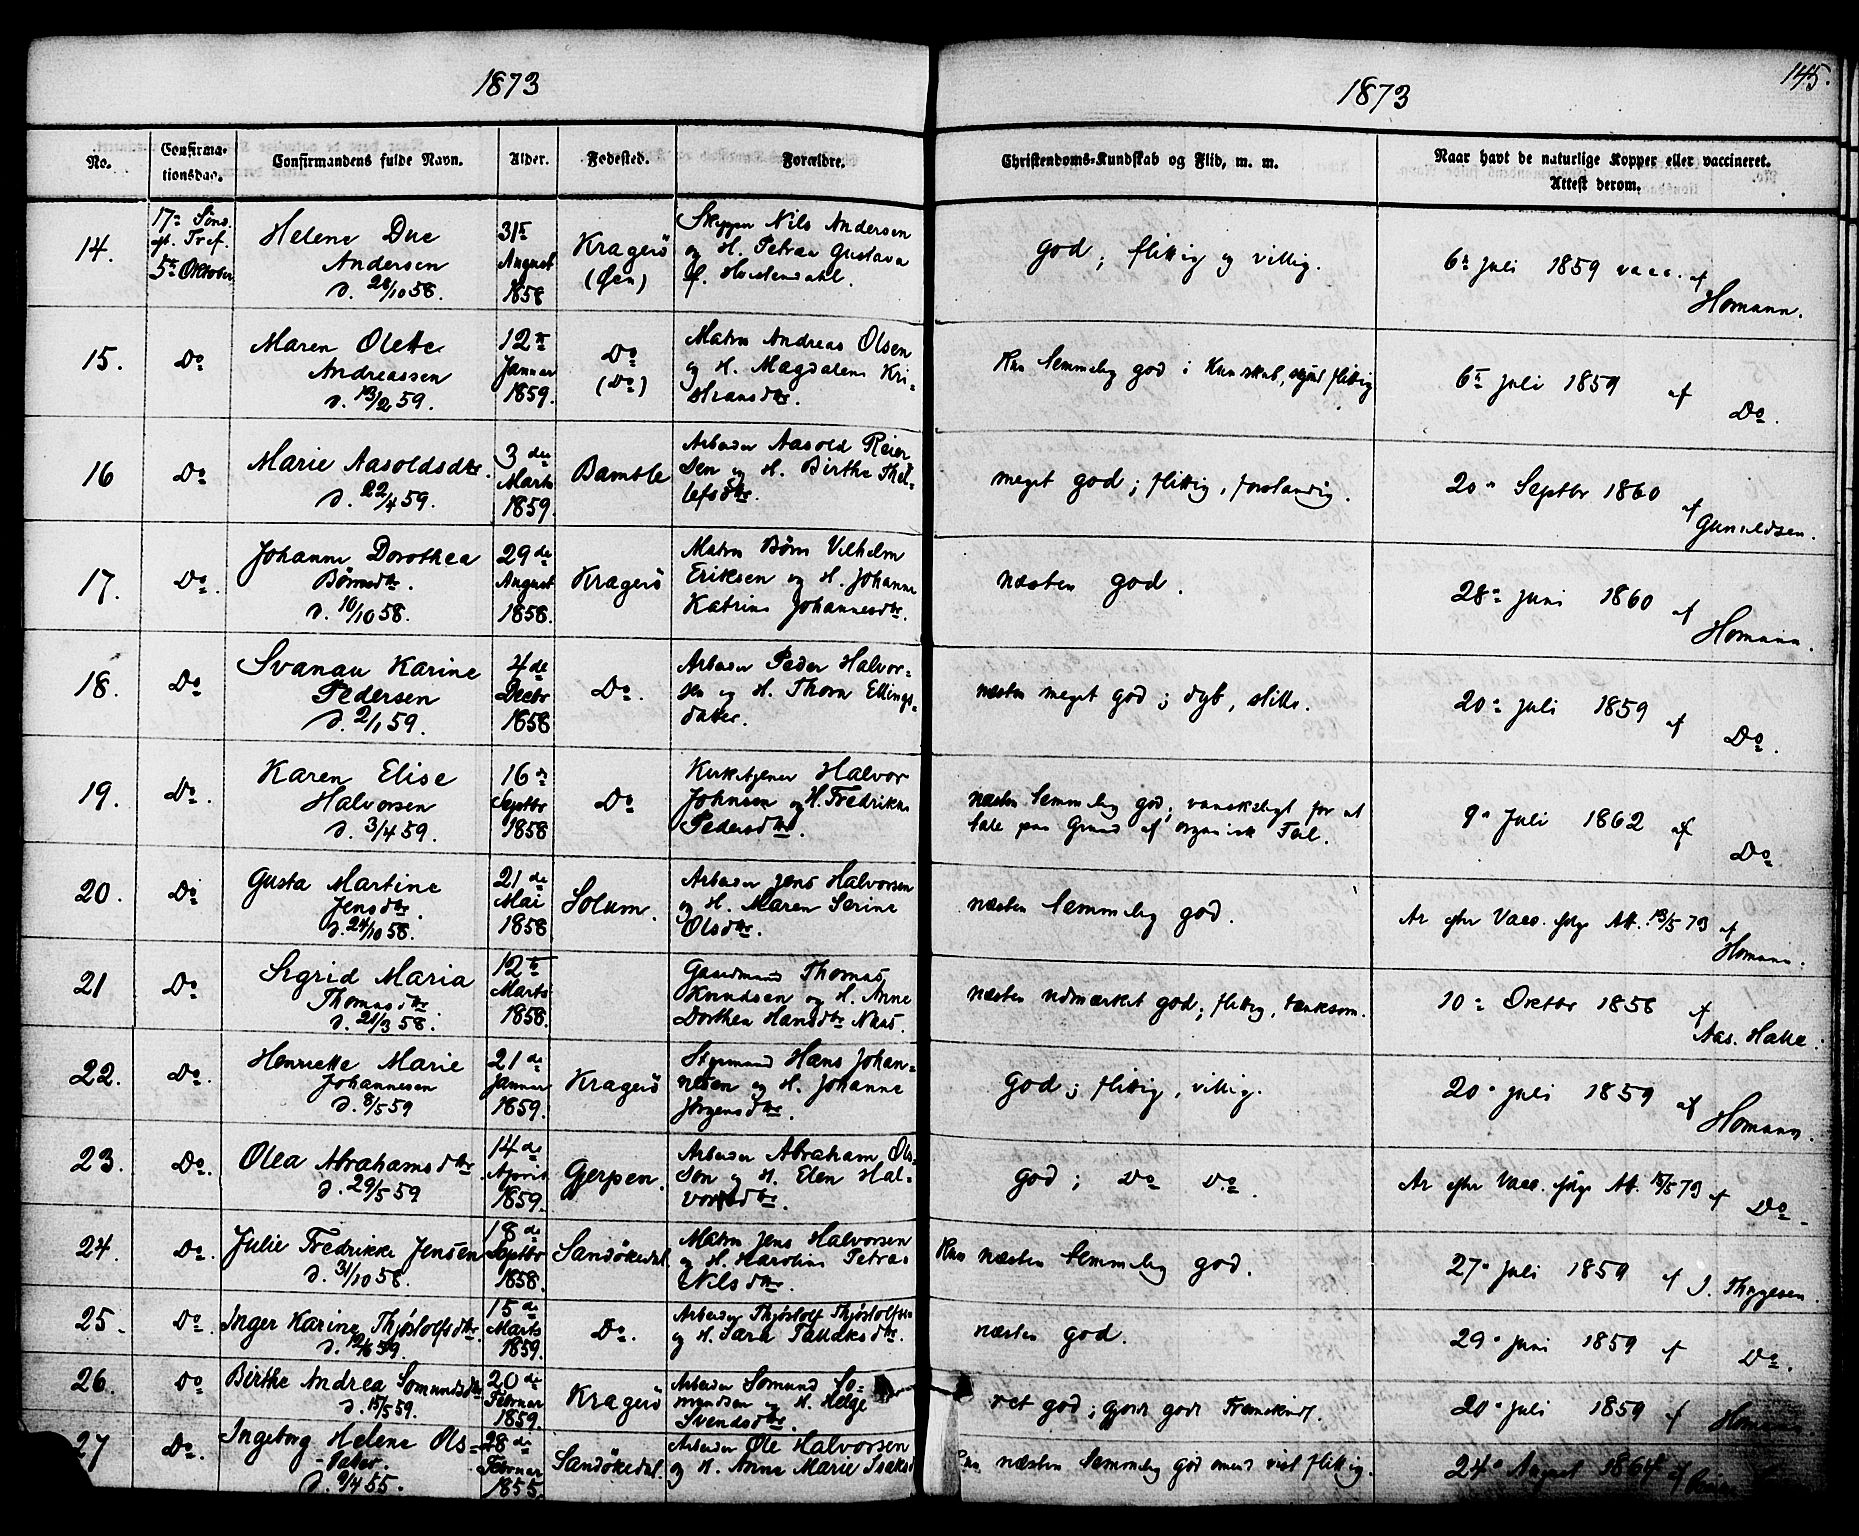 1873
1873
145.
No.
Confirma-
tionsdag.
Confirmandens fulde Navn.
Alder.
Fødested.
Forældre.
Christendoms-Kundskab og Flid, m. m.
Naar havt de naturlige Kopper eller vaccineret.
Attest derom.
14.
17de Sønd.
eft. Tref.
5te Oktober
Helene Due
Andersen
d. 28/10 58.
31te
August
1858
Kragerö
(Øen)
Skipper Nils Andersen
og H. Petrea Gustava
f. Hustendahl.
god; flittig og villig.
6te Juli 1859 vacc. af
Homann.
15.
Do
Maren Olette
Andreassen
d. 13/2 59.
12te
Januar
1859.
Do
(Do)
Matros Andreas Olsen
og H. Magdalena Kri-
stiansdtr.
Kun temmelig god i Kunskab, skjønt flittig
6te Juli 1859 af
Do.
16
Do
Marie Aasoldsdtr.
d. 22/4 59.
3de
Marts
1859.
Bamble
Arbeider Aasold Reier
sen og H. Birthe Thel-
lefsdtr.
meget god; flittig, forstandig.
20de Septbr 1860
af Gunueldsen.
17.
Do.
Johanne Dorothea
Börnsdtr.
d. 10/10 58.
29de
August
1858.
Kragerö
Matros Börn Vilhelm
Eriksen og H. Johanne
Katrine Johannesdtr.
næsten god.
28de Juni 1860 af
Homann.
18.
Do
Svanau Karine
Pedersen
d. 2/1 59.
4de
Decbr
1858
Do.
Arbeider Peder Halvor-
sen og H. Thorn Ellings-
datter.
næsten meget god; dyb, stille.
20de Juli 1859 af
Do.
19.
Do.
Karen Elise
Halvorsen
d. 3/4 59.
16de
Septbr
1858
Do
Kirketjener Halvor
Johnsen og H. Fredrikke
Pedersdtr.
næsten temmelig god; vanskeligt for at
tale paa Grund af organisk Feil.
9de Juli 1862 af
Do.
20.
Do
Gusta Martine
Jensdtr.
d. 24/10 58.
21de
Mai
1858
Solum.
Arbeider Jens Halvorsen
og H. Maren Serine
Olsdtr.
næsten temmelig god.
Ar efter Vacc. ifølge Att. 13/5 73 af
Homann.
21
Do
Sigrid Maria
Thomasdtr
d. 21/3 58.
12te
Marts
1858.
Gaardmand Thomas
Knudsen og H. Anne
Dorthea Hansdtr Næs.
næsten udmærket god; flittig, tænksom.
10de Oktbr 1858 af
Aas. Halle.
22.
Do.
Henriette Marie
Johannesen
d. 8/5 59
21de
Januar
1859.
Kragerö
Styrmand Hans Johan-
nesen og H. Johanne
Jørgensdtr.
God; flittig, villig.
20de Juli 1859 af
Homann.
23.
Do.
Olea Abrahamsdtr
d. 29/5 59
14de
April
1859.
Gjerpen.
Arbeider Abraham Ols-
son og H. Elen Hal-
vorsdtr.
god; Do Do.
Ar efter Vacc. ifølge Att. 15/5 73 af
Do
24.
Do.
Julie Fredrikke Jensen
d. 31/10 58.
18de
Septbr
1858.
Sandökedal.
Matros Jens Halvorsen
og H. Karoline Petrea
Nilsdtr.
Kun næsten temmelig god.
27de Juli 1859 af J. Thygesen.
25.
Do.
Inger Karine Thjöstolfsdtr.
d. 12/6 59.
15de
Marts
1859.
Do.
Arbeider Thjöstolf Thjöstolfsen
og H. Sara Tallaksdtr.
næsten god.
29de Juni 1859 af Do.
26.
Do
Birthe Andrea Somundsdtr
d. 15/5 59.
20de
Februar
1859.
Kragerö
Arbeider Somund So-
mundsen og H. Helge
Svendsdtr.
ret god; gjort gode Fremskridt.
20de Juli 1859 af Homann.
27
Do.
Ingeborg Helene Ols-
datter.
d. 9/4 55.
28de
Februar
1855.
Sandökedal.
Arbeider Ole Halvorsen
og H. Anne Marie Isaksd
Kun næsten temmelig god omend vist flittig.
24de August 1864 af